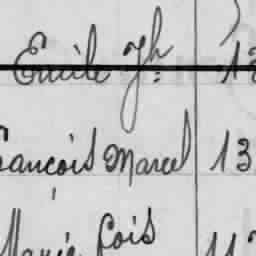 Emile Jh: 13
François Marcel 13
Marie fois 117